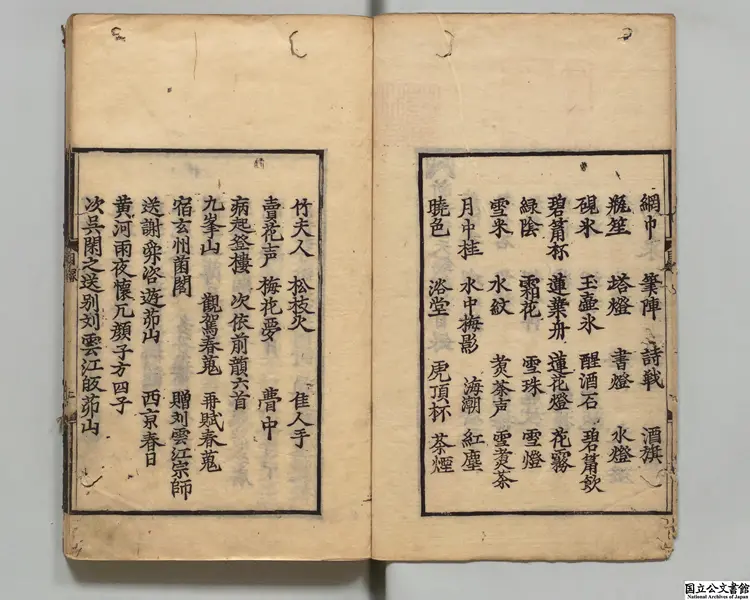 網巾 筆陣 詩戰 酒旗
瓶笙 塔燈 書燈 水燈
硯氷 玉壷氷 醒酒石 碧筩飲
碧筩杯 蓮葉舟 蓮花燈 花霧
緑陰 霜花 雪珠 雪燈
雪米 水紋 煑茶声 雪煑茶
月中桂 水中梅影 海潮 紅塵
曉色 浴堂 虎頂杯 茶煙
竹夫人 松枝火 佳人手
賣花声 梅花夢 夢中
病起登樓 次依前韻六首
九峯山 觀駕春蒐 再賦春蒐
宿玄州菌閣 贈刘雲江宗師
送謝舜咨遊茆山 西京春日
黄河雨夜懷亢顔子方四子
次吳閑之送别刘雲江皈茆山
目録
国立公文書館
National Archives of Japan